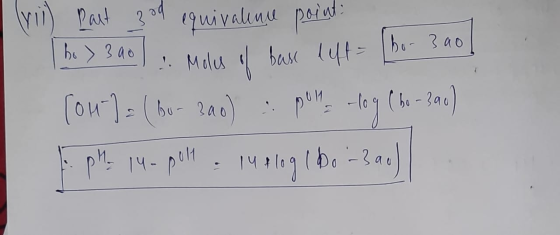 (vii) Past 3rd equivalence point:
b₀ > 3a₀ ∴ Moles of base left = b₀ - 3a₀
[OH⁻] = (b₀ - 3a₀) ∴ pOH = -log (b₀ - 3a₀)
∴ pH = 14 - pOH = 14 + log (b₀ - 3a₀)